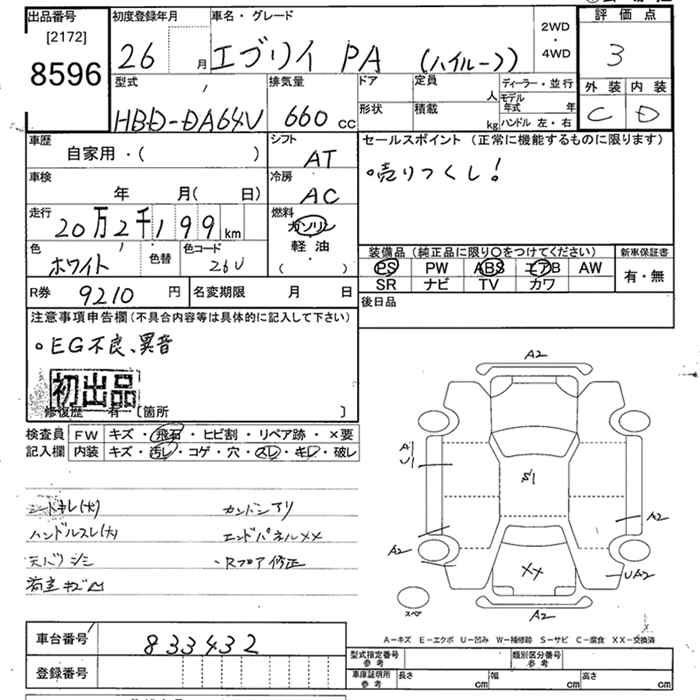 出品番号
[2172]
8596
初度登録年月
26 月
車名・グレード
エブリイ PA (ハイルーフ)
2WD
・
4WD
評価点
3
外装 内装
C D
型式
HBD-DA64V
排気量
660 cc
ドア
形状
定員
人
積載
kg
ディーラー・並行
モデル年式 年
ハンドル 左・右
車歴
自家用・( )
シフト
AT
セールスポイント (正常に機能するものに限ります)
・売りつくし!
車検
年 月( 日)
冷房
AC
走行
20万2千199km
燃料
ガソリン
軽油・
( )
色
ホワイト
色替
色コード
26U
装備品 (純正品に限り○をつけてください)
PS PW ABS エアB AW
SR ナビ TV カワ
新車保証書
有・無
R券 9210 円
名変期限 月 日
後日品
注意事項申告欄 (不具合内容等は具体的に記入して下さい)
○EG不良、異音
初出品
修復歴 有 [箇所 ]
検査員
記入欄
FW キズ・飛石・ヒビ割・リペア跡・×要
内装 キズ・汚レ・コゲ・穴・スレ・キレ・破レ
シートキレ(大)
ハンドルスレ(大)
天バリシミ
荷室キズ凹
カントンアリ
エンドパネルXX
・Rフロア修正
A2
A1
U1
S1
A2
A2
XX
UA2
A2
スペア
A-キズ E-エクボ U-凹み W-補修跡 S-サビ C-腐食 XX-交換済
車台番号 833432
登録番号
型式指定番号
参考
類別区分番号
参考
車庫証明所
参考
長さ cm
幅 cm
高さ cm